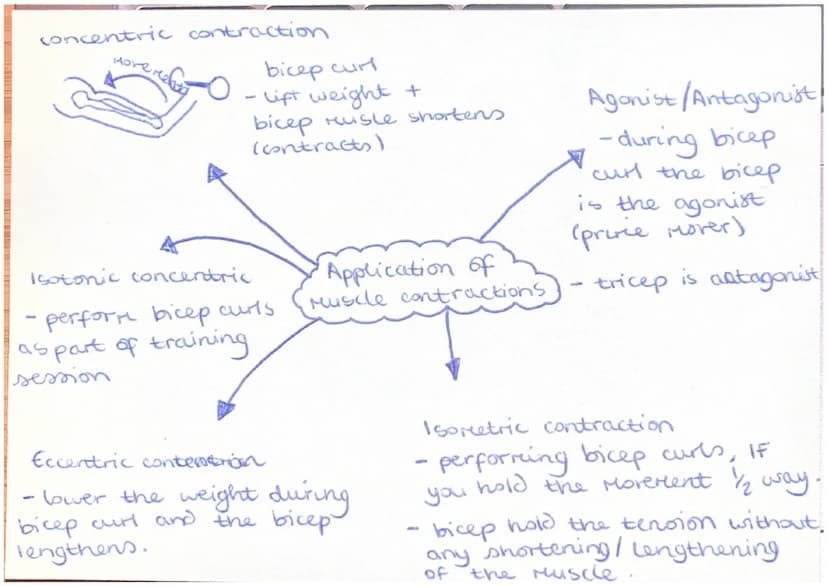 concentric contraction
movement
bicep curl
- Lift weight +
bicep muscle shortens
(contracts)
Agonist/Antagonist
- during bicep
curl the bicep
is the agonist
(prime mover)
- tricep is antagonist
Application of
muscle contractions
Isotonic concentric
- perform bicep curls
as part of training
session
Eccentric
- lower the weight during
bicep curl and the bicep
lengthens.
Isometric contraction
- performing bicep curls, If
you hold the movement 1/2 way.
- bicep hold the tension without
any shortening/lengthening
of the muscle.